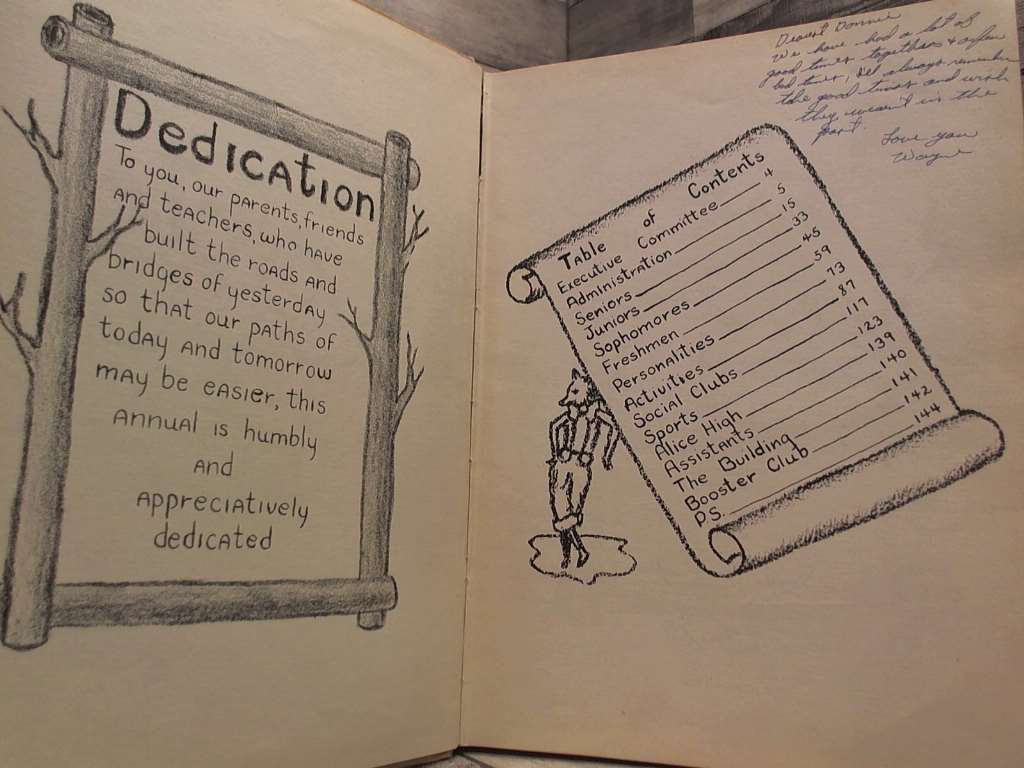 Dedication
To you, our parents, friends
and teachers, who have
built the roads and
bridges of yesterday
so that our paths of
today and tomorrow
may be easier, this
annual is humbly
and
appreciatively
dedicated
Dearest Donnie
We have had a lot of
good times togethers & a few
bad times, always remember
the good times and wish
they weren't in the
past.
Love you
Wayne
Table of Contents
Executive Committee 4
Administration 5
Seniors 15
Juniors 33
Sophomores 45
Freshmen 59
Personalities 73
Activities 87
Social Clubs 117
Sports 123
Alice High 139
Assistants 140
The Building 141
Booster Club 142
P.S. 144